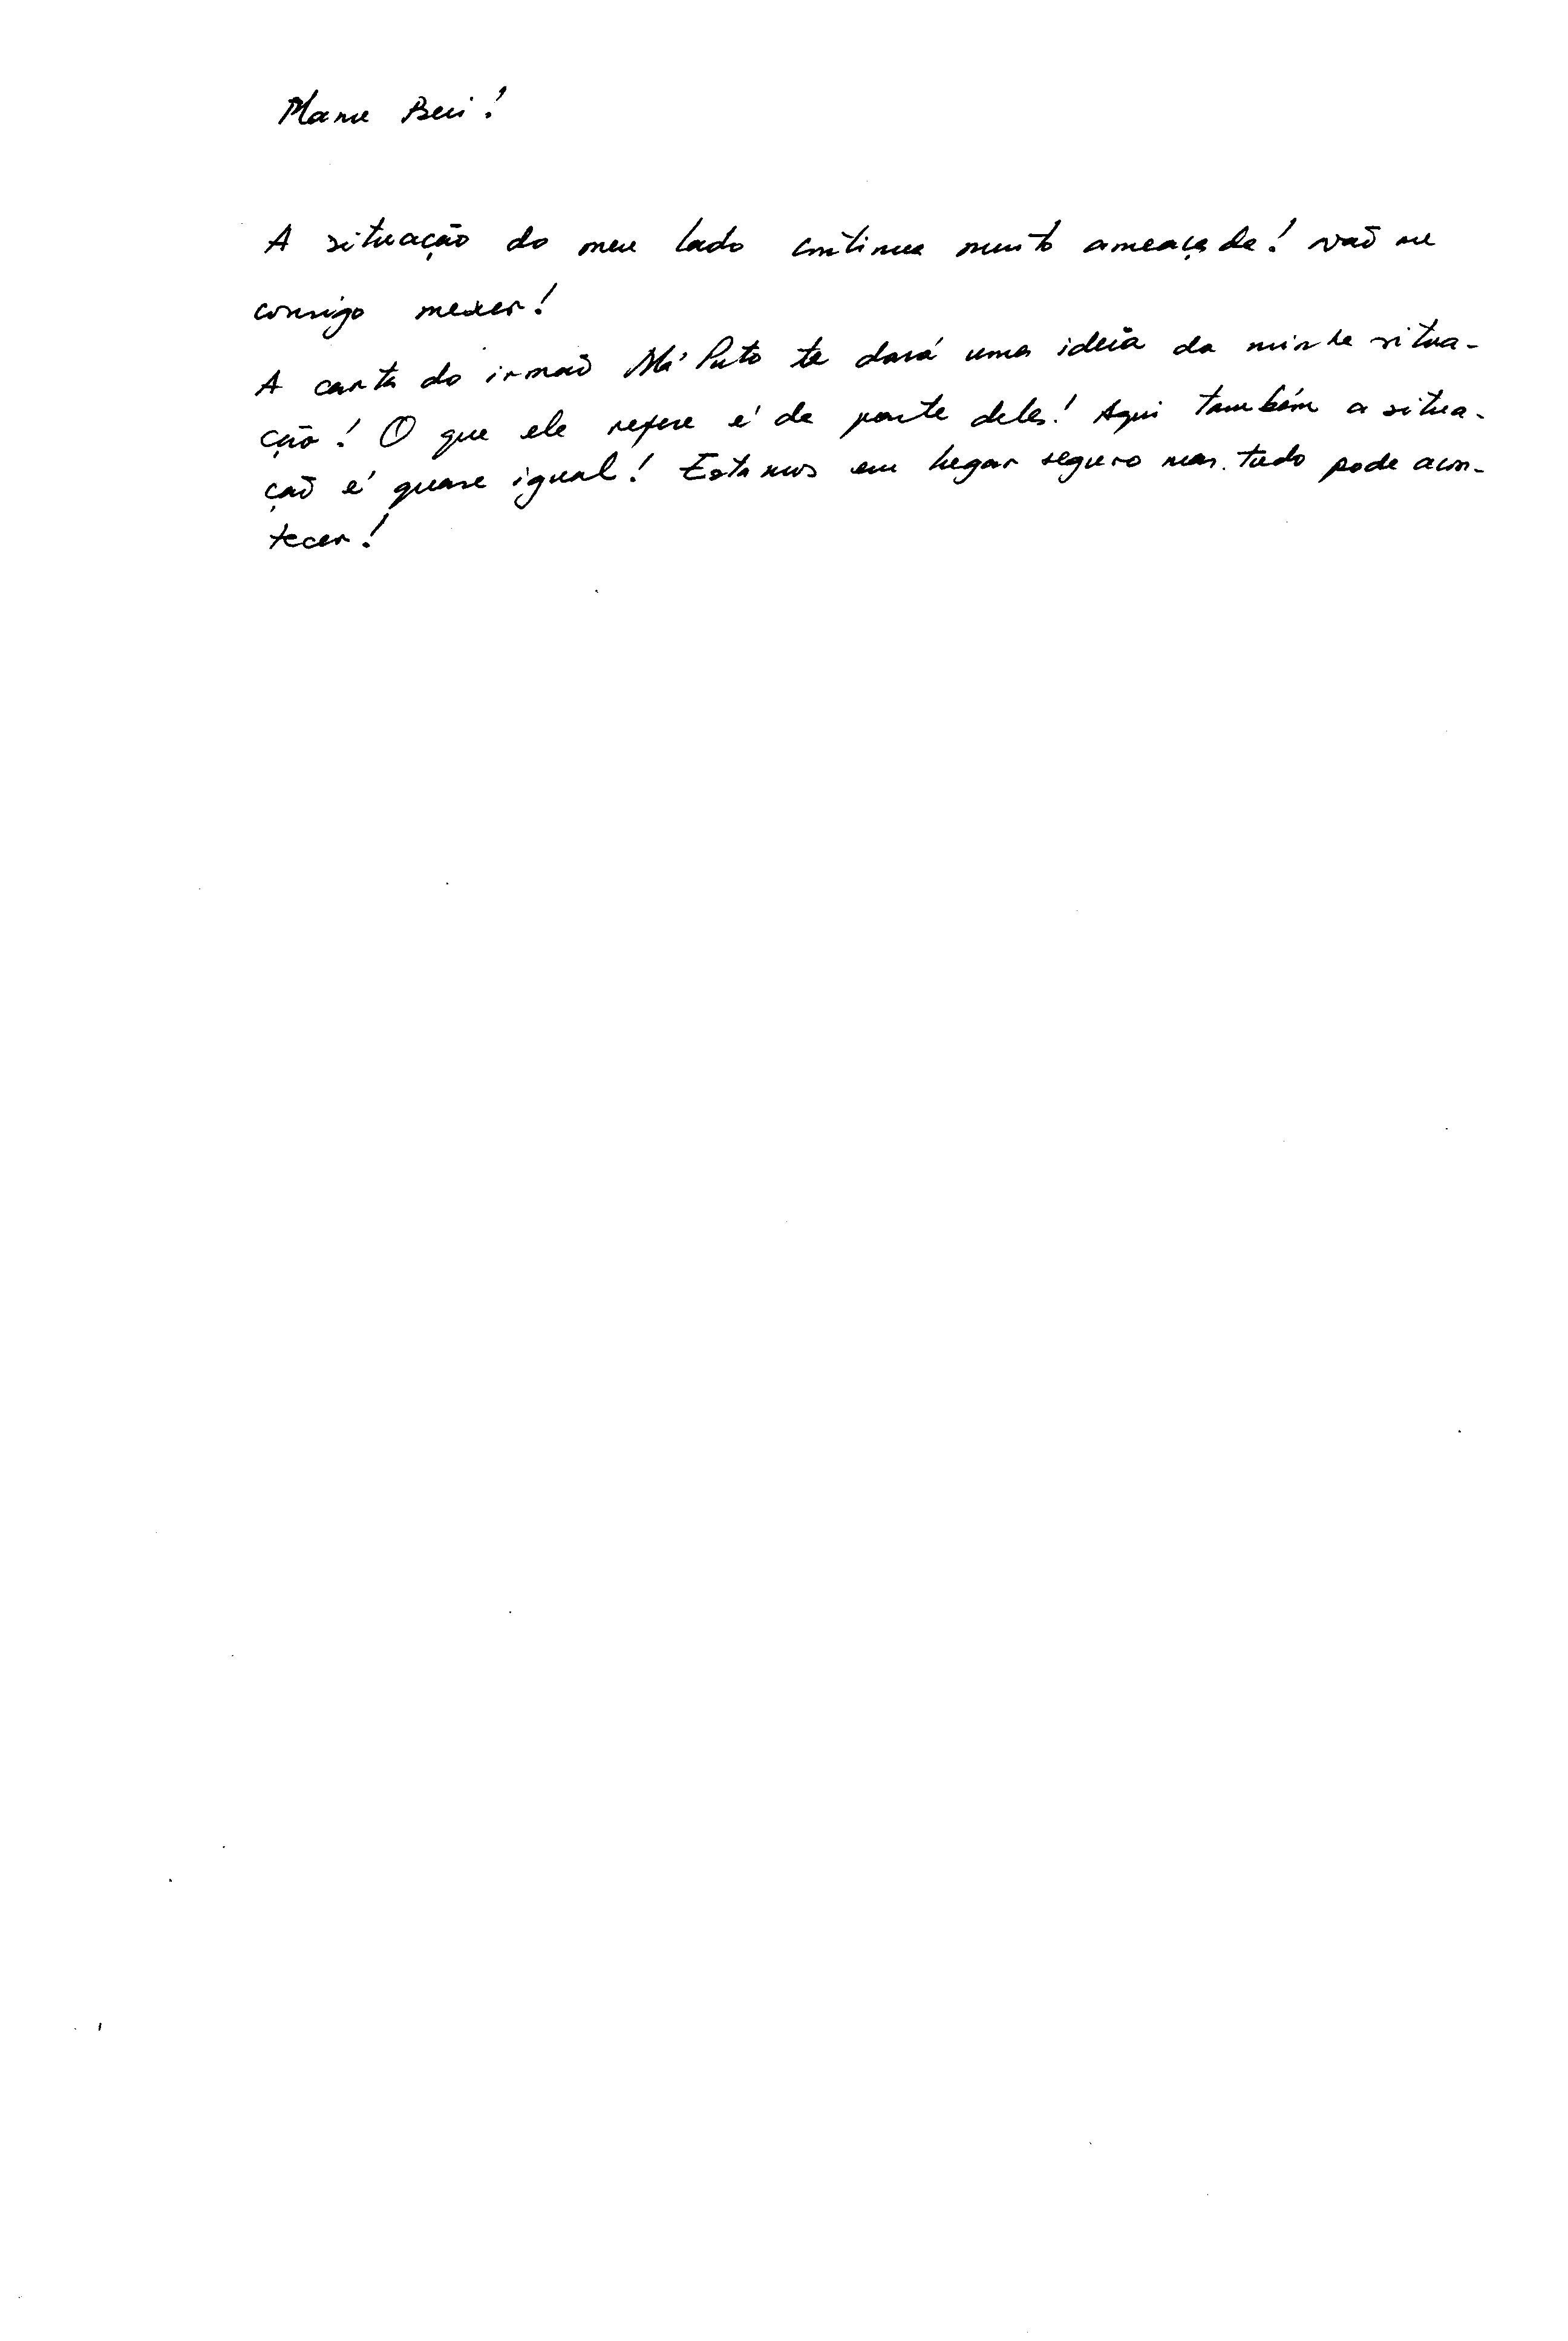 Mana Bui!
A situação do meu lado continua muito ameaçada! não me
consigo mexer!
A carta do irmão Má Puto te dará uma ideia da minha situa-
ção! O que ele refere é da parte deles! Aqui também a situa-
ção é quase igual! Estamos em lugar seguro mas tudo pode acon-
tecer!